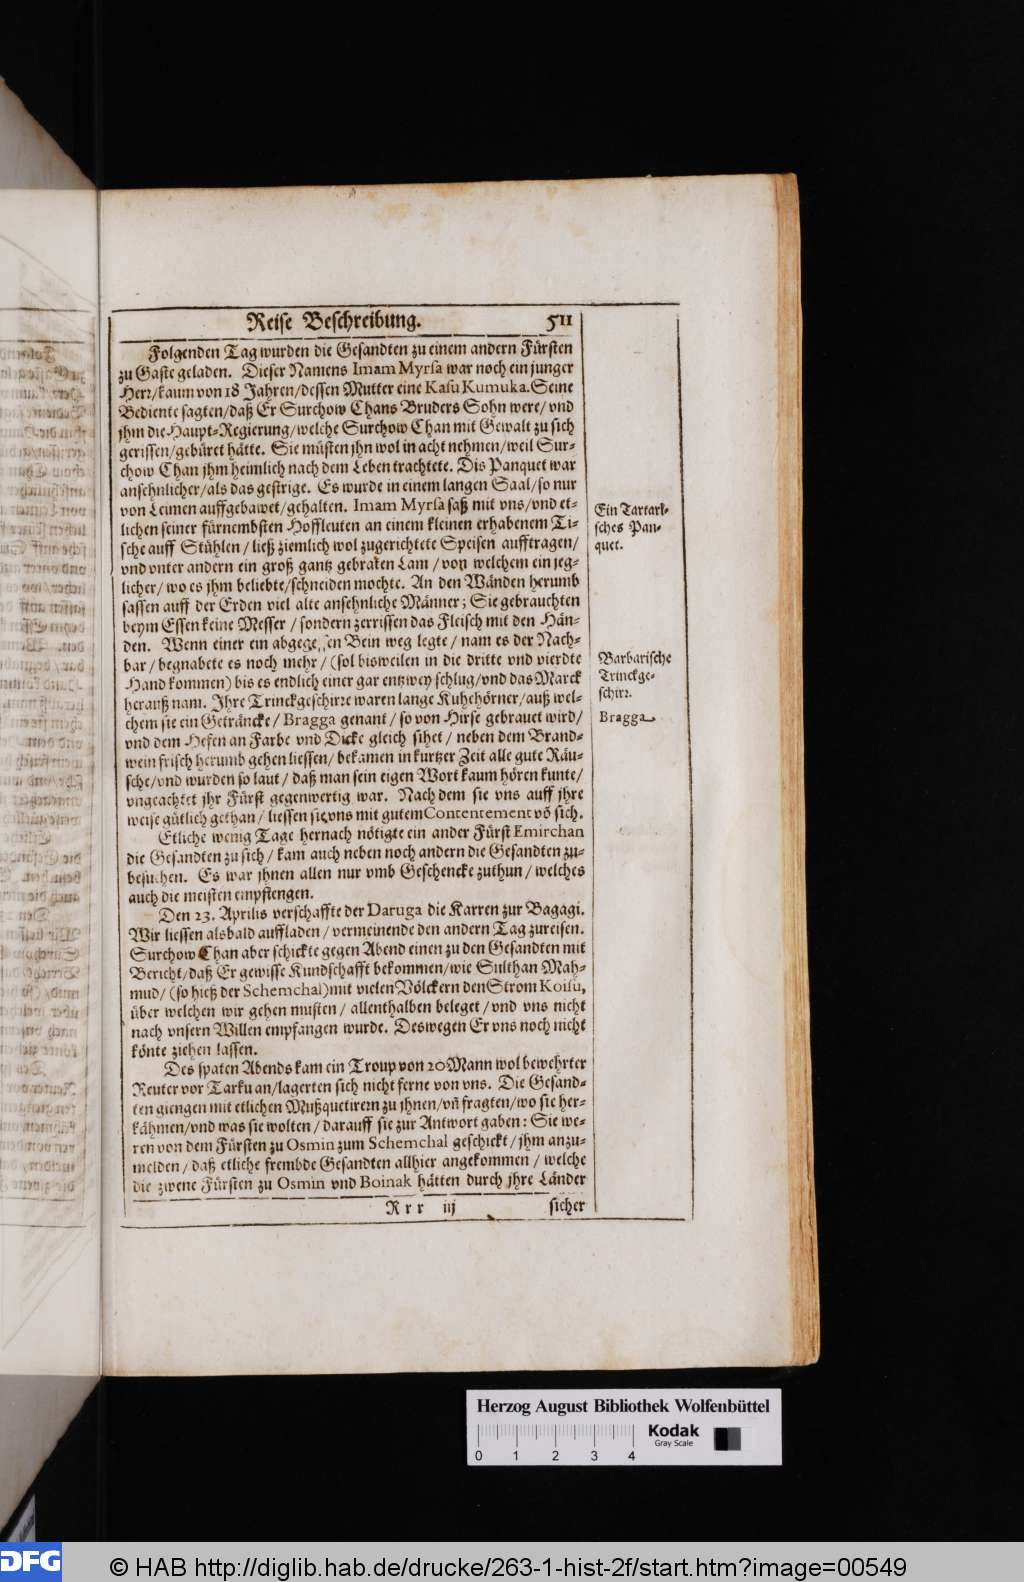 Reise Beschreibung. 511
Folgenden Tag wurden die Gesandten zu einem andern Fürsten
zu Gaste geladen. Dieser Namens Imam Myrsa war noch ein junger
Herr/kaum von 18 Jahren/dessen Mutter eine Kasu Kumuka. Seine
Bediente sagten/daß Er Surchow Chans Bruders Sohn were/vnd
jhm die Haupt-Regierung/welche Surchow Chan mit Gewalt zu sich
gerissen/gebüret hätte. Sie müsten jhn wol in acht nehmen/weil Sur-
chow Chan jhm heimlich nach dem Leben trachtete. Dis Panquet war
ansehnlicher/als das gestrige. Es wurde in einem langen Saal/so nur
von Leimen auffgebawet/gehalten. Imam Myrsa saß mit vns/vnd et-
lichen seiner fürnembsten Hoffleuten an einem kleinen erhabenem Ti-
sche auff Stühlen/ließ ziemlich wol zugerichtete Speisen aufftragen/
vnd vnter andern ein groß gantz gebraten Lam/von welchem ein jeg-
licher/wo es jhm beliebte/schneiden mochte. An den Wänden herumb
sassen auff der Erden viel alte ansehnliche Männer; Sie gebrauchten
beym Essen keine Messer/sondern zerrissen das Fleisch mit den Hän-
den. Wenn einer ein abgege en Bein weg legte/nam es der Nach-
bar/begnabete es noch mehr/(sol bisweilen in die dritte vnd vierdte
Hand kommen) bis es endlich einer gar entzwey schlug/vnd das Marck
herauß nam. Ihre Trinckgeschirre waren lange Kuhehörner/auß wel-
chem sie ein Geträncke/Bragga genant/so von Hirse gebrauet wird/
vnd dem Hefen an Farbe vnd Dicke gleich sihet/neben dem Brand-
wein frisch herumb gehen liessen/bekamen in kurtzer Zeit alle gute Räu-
sche/vnd wurden so laut/daß man sein eigen Wort kaum hören kunte/
vngeachtet jhr Fürst gegenwertig war. Nach dem sie vns auff jhre
weise gütlich gethan/liessen sie vns mit gutem Contentement võ sich.
Etliche wenig Tage hernach nötigte ein ander Fürst Emirchan
die Gesandten zu sich/kam auch neben noch andern die Gesandten zu-
besuchen. Es war jhnen allen nur vmb Geschencke zuthun/welches
auch die meisten empfiengen.
Den 23. Aprilis verschaffte der Daruga die Karren zur Bagagi.
Wir liessen alsbald auffladen/vermeinende den andern Tag zureisen.
Surchow Chan aber schickte gegen Abend einen zu den Gesandten mit
Bericht/daß Er gewisse Kundschafft bekommen/wie Sulthan Mah-
mud/(so hieß der Schemchal) mit vielen Völckern den Strom Koisu,
über welchen wir gehen musten/allenthalben beleget/vnd vns nicht
nach vnsern Willen empfangen wurde. Deswegen Er vns noch nicht
könte ziehen lassen.
Des spaten Abends kam ein Troup von 20 Mann wol bewehrter
Reuter vor Tarku an/lagerten sich nicht ferne von vns. Die Gesand-
ten giengen mit etlichen Mußquetirern zu jhnen/vñ fragten/wo sie her-
kähmen/vnd was sie wolten/darauff sie zur Antwort gaben: Sie we-
ren von dem Fürsten zu Osmin zum Schemchal geschickt/jhm anzu-
melden/daß etliche frembde Gesandten allhier angekommen/welche
die zwene Fürsten zu Osmin vnd Boinak hätten durch jhre Länder
Rrr iij sicher
Ein Tartari-
sches Pan-
quet.
Barbarische
Trinckge-
schirr.
Bragga
Herzog August Bibliothek Wolfenbüttel
Kodak
Gray Scale
0 1 2 3 4
DFG
© HAB http://diglib.hab.de/drucke/263-1-hist-2f/start.htm?image=00549